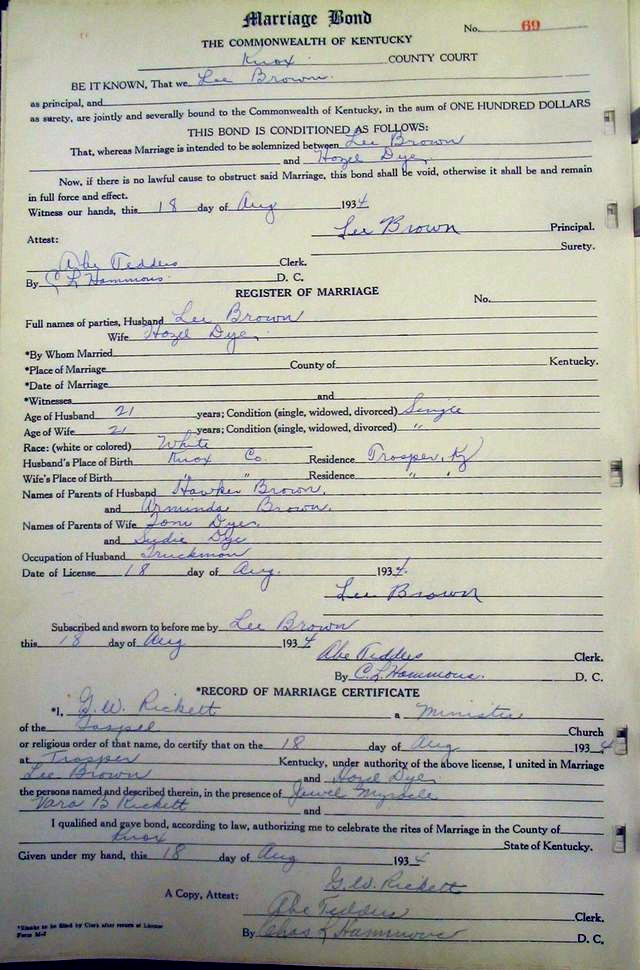 Marriage Bond
No. 69
THE COMMONWEALTH OF KENTUCKY
Knox COUNTY COURT
BE IT KNOWN, That we Lee Brown.
as principal, and
as surety, are jointly and severally bound to the Commonwealth of Kentucky, in the sum of ONE HUNDRED DOLLARS
THIS BOND IS CONDITIONED AS FOLLOWS:
That, whereas Marriage is intended to be solemnized between Lee Brown
and Hazel Dye,
Now, if there is no lawful cause to obstruct said Marriage, this bond shall be void, otherwise it shall be and remain
in full force and effect.
Witness our hands, this 18 day of Aug 1934
Lee Brown Principal.
Attest: Surety.
Abe Tedders Clerk.
By C L Hammons. D. C.
REGISTER OF MARRIAGE
No.
Full names of parties, Husband Lee Brown
Wife Hazel Dye,
*By Whom Married
*Place of Marriage County of Kentucky.
*Date of Marriage
*Witnesses and
Age of Husband 21 years; Condition (single, widowed, divorced) Single
Age of Wife 21 years; Condition (single, widowed, divorced) "
Race: (white or colored) White
Husband's Place of Birth Knox Co. Residence Trosper, Ky
Wife's Place of Birth " " Residence " "
Names of Parents of Husband Hawker Brown,
and Arminda Brown.
Names of Parents of Wife Tom Dye,
and Sudie Dye
Occupation of Husband Truckman
Date of License 18 day of Aug. 1934.
Lee Brown
Subscribed and sworn to before me by Lee Brown
this 18 day of Aug 1934
Abe Tedders Clerk.
By C. L. Hammons. D. C.
*RECORD OF MARRIAGE CERTIFICATE
*I, G. W. Rickett a Minister
of the Gospel Church
or religious order of that name, do certify that on the 18 day of Aug 1934
at Trosper Kentucky, under authority of the above license, I united in Marriage
Lee Brown and Hazel Dye,
the persons named and described therein, in the presence of Jewel Myracle
Vara B Rickett and
I qualified and gave bond, according to law, authorizing me to celebrate the rites of Marriage in the County of
Knox State of Kentucky.
Given under my hand, this 18 day of Aug 1934
G. W. Rickett
A Copy, Attest:
Abe Tedders Clerk.
*Blanks to be filled by Clerk after return of License
By Chas L Hammons D. C.